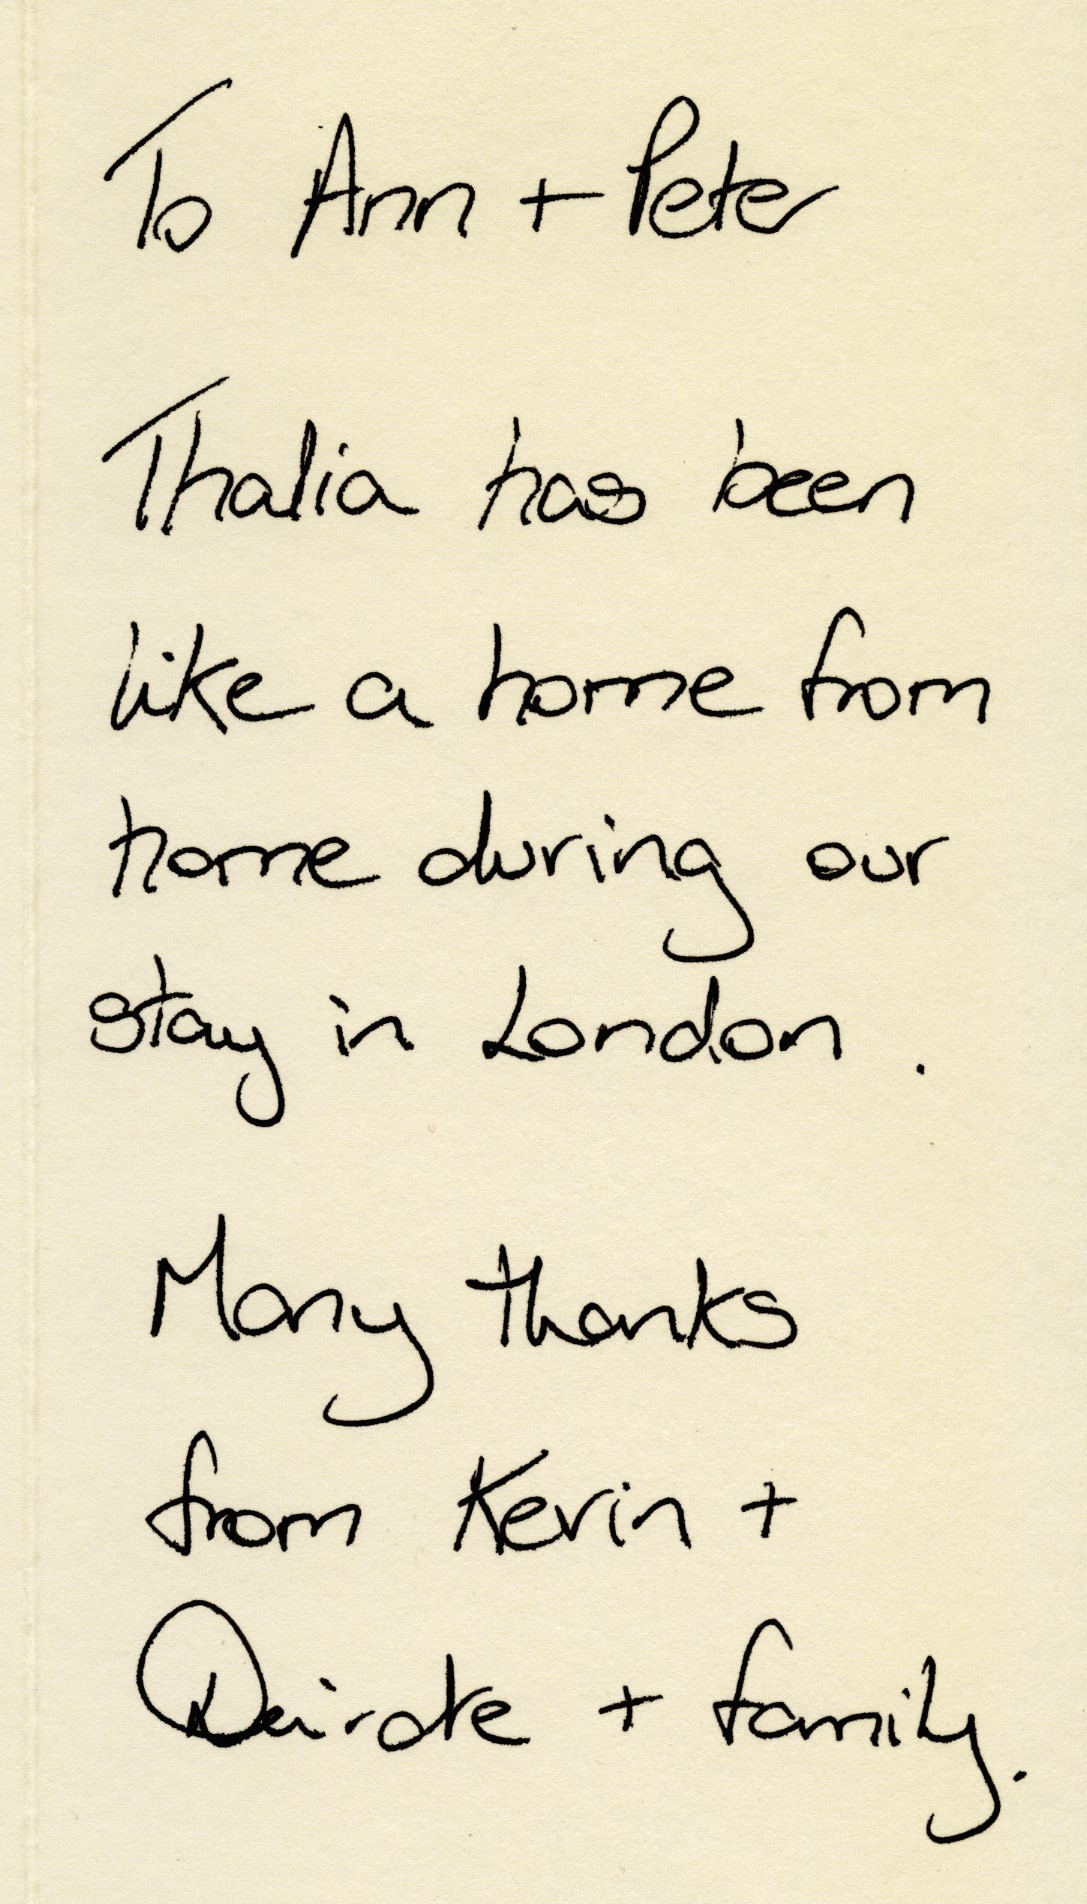 To Ann + Peter
Thalia has been
like a home from
home during our
stay in London .
Many thanks
from Kevin +
Deirdre + family.